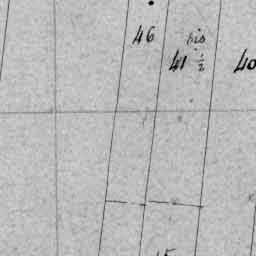 46
bis
41 ½
40